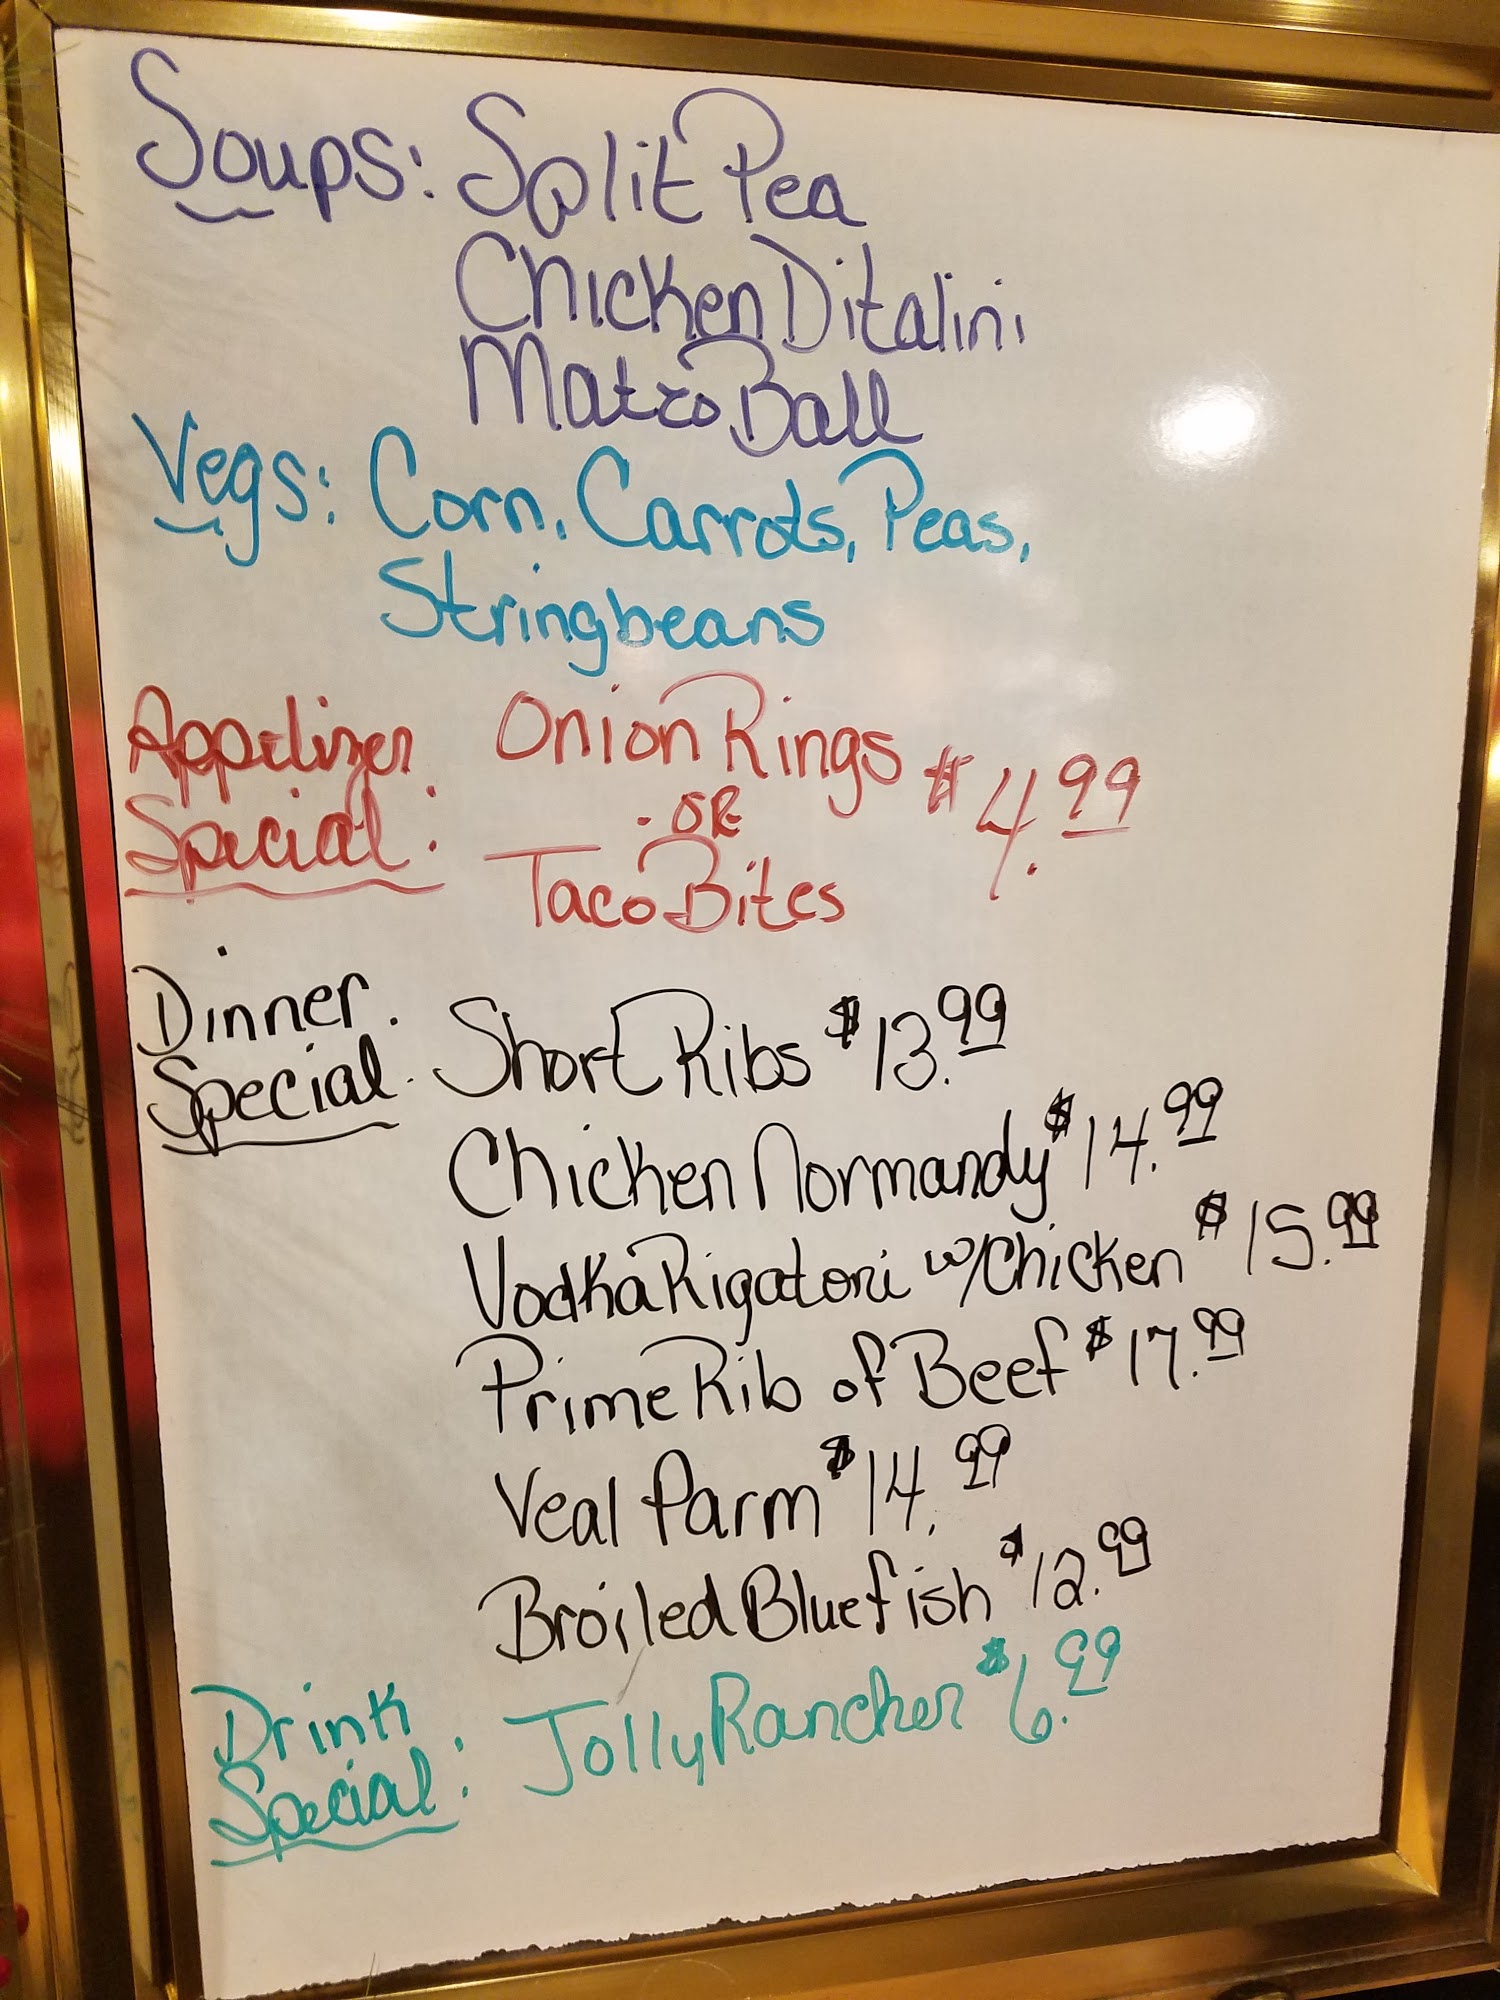 Soups: Split Pea
Chicken Ditalini
Matzo Ball
Vegs: Corn, Carrots, Peas,
Stringbeans
Appetizer Special: Onion Rings $4.99
OR
Taco Bites
Dinner Special: Short Ribs $13.99
Chicken Normandy $14.99
Vodka Rigatoni w/Chicken $15.99
Prime Rib of Beef $17.99
Veal Parm $14.99
Broiled Bluefish $12.99
Drink Special: Jolly Rancher $6.99